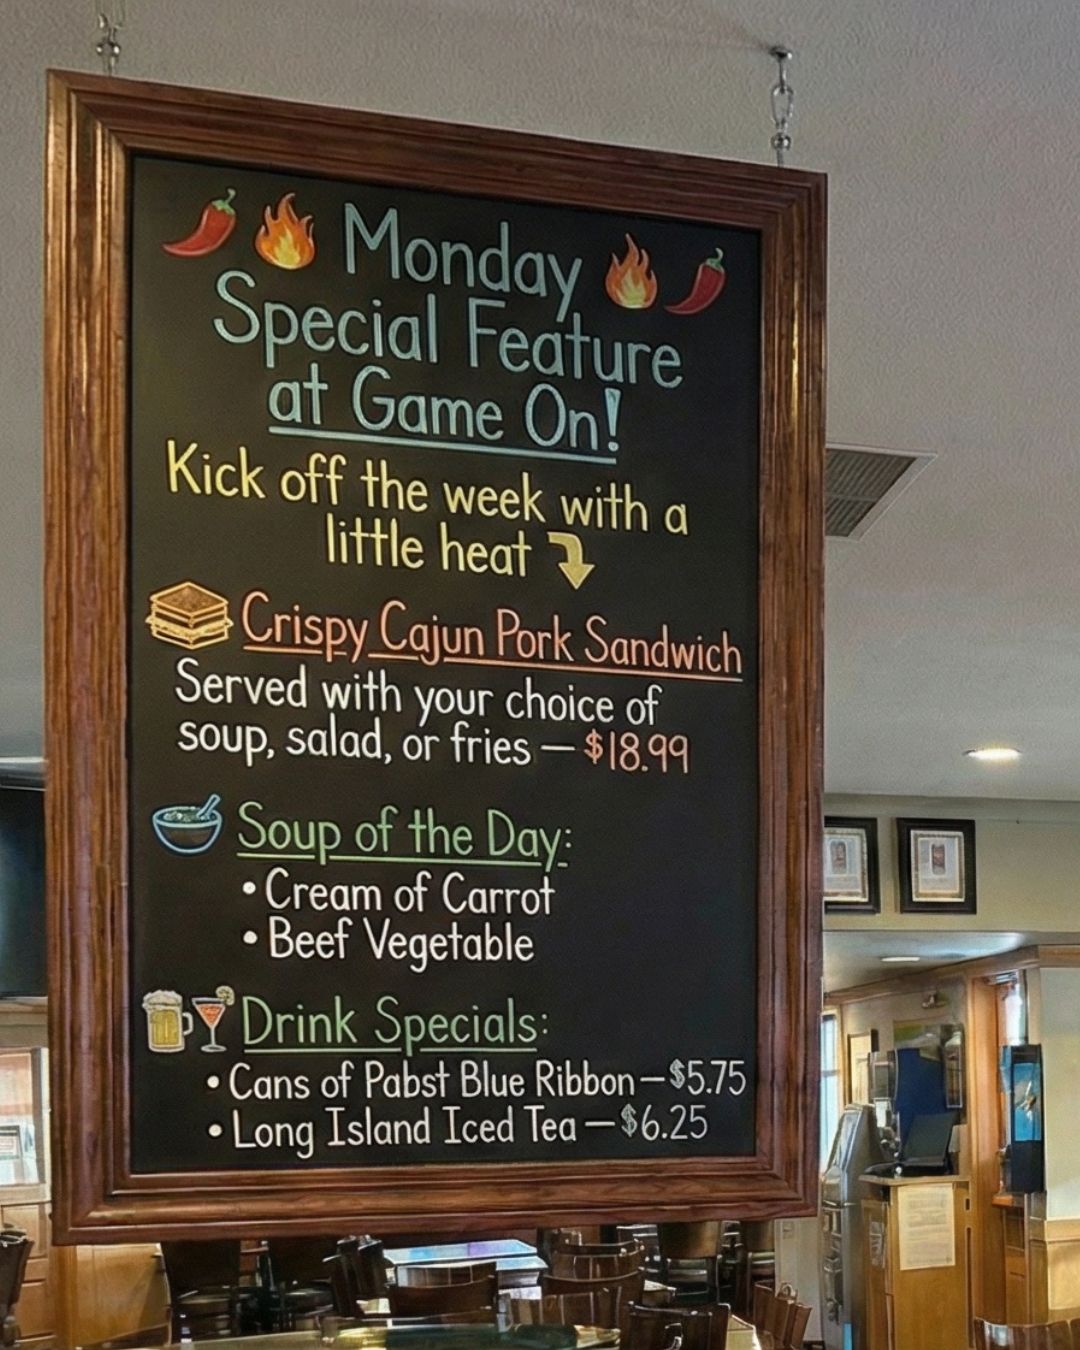 Monday
Special Feature
at Game On!
Kick off the week with a
little heat
Crispy Cajun Pork Sandwich
Served with your choice of
soup, salad, or fries — $18.99
Soup of the Day:
• Cream of Carrot
• Beef Vegetable
Drink Specials:
• Cans of Pabst Blue Ribbon — $5.75
• Long Island Iced Tea — $6.25